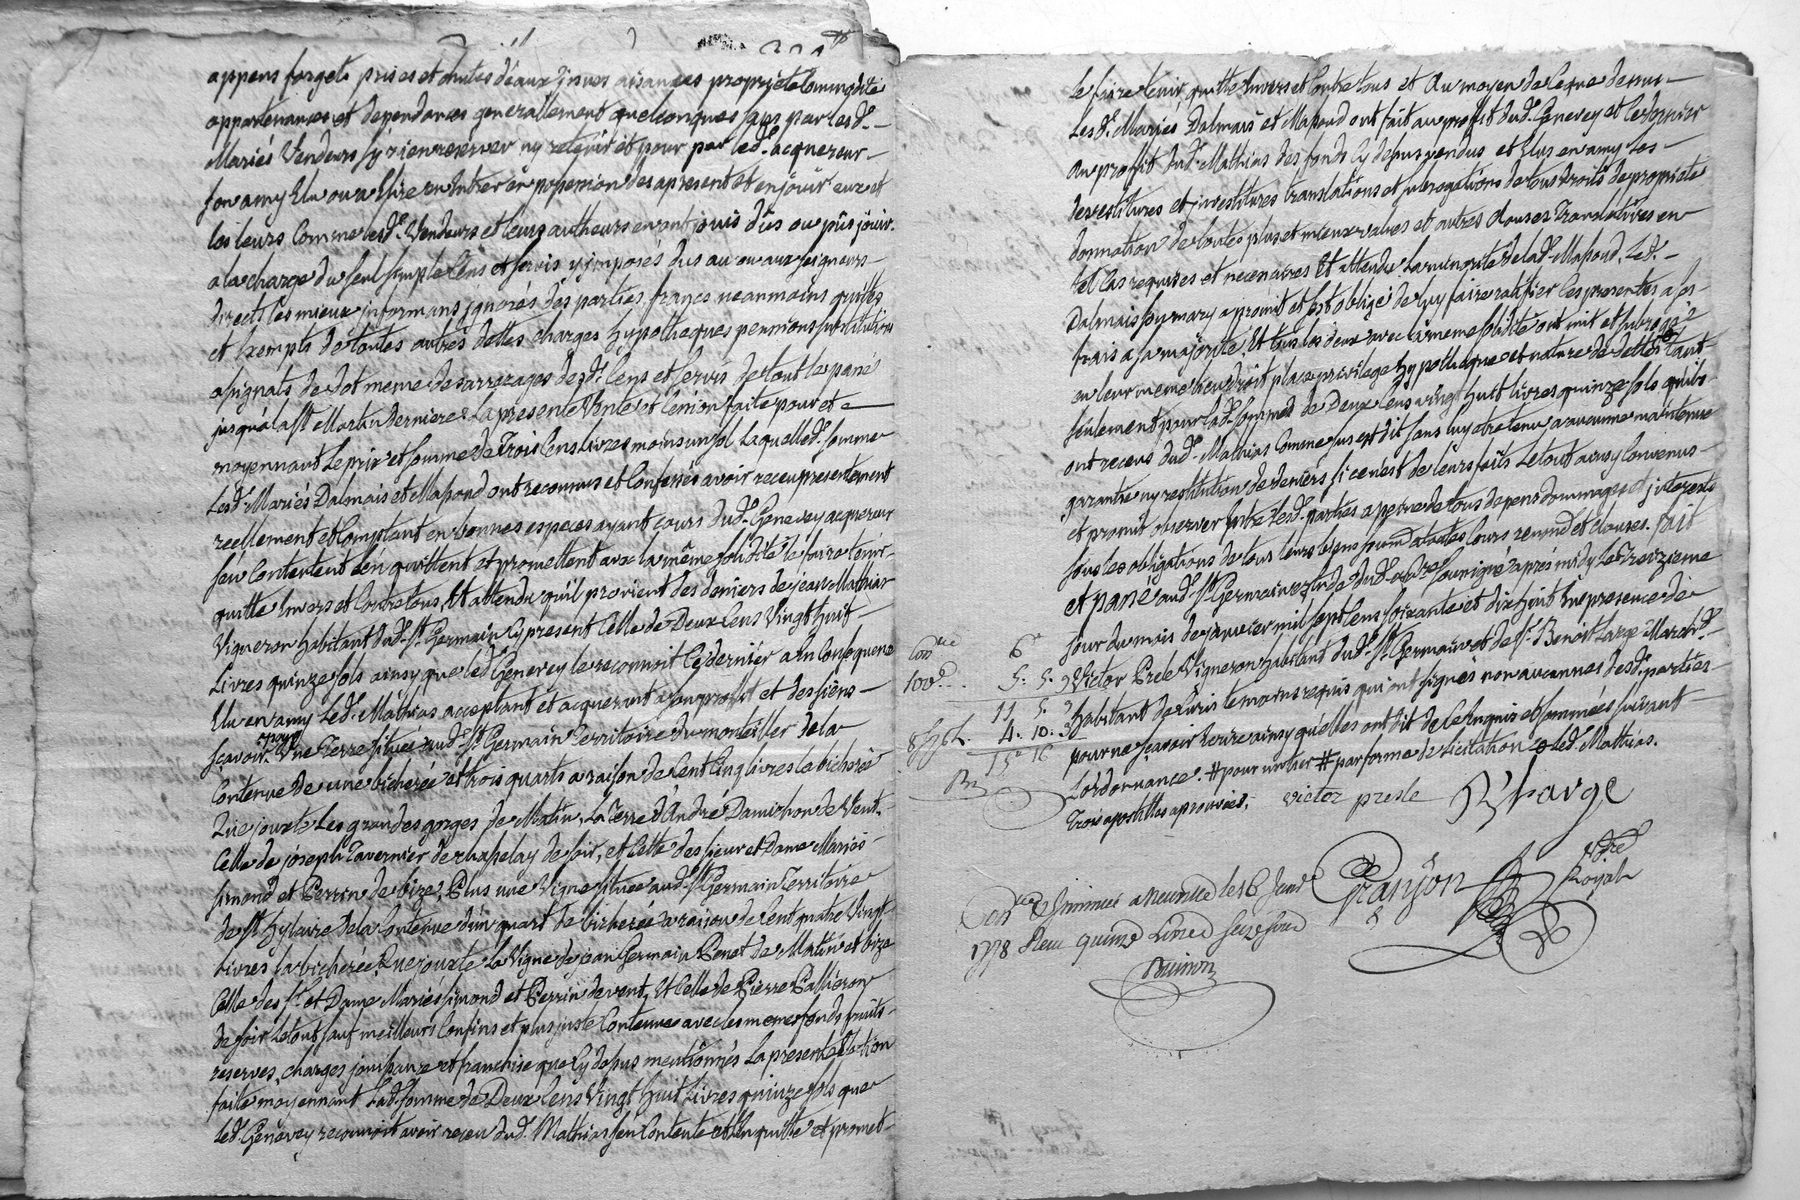 appens forgets prises et chutes d'eaux issues aisances propriete commodité
appartenances et dependances generallement quelconques sans par lesd.
Mariés Vendeurs s'y rien reserver ny retenir et pour par led. acquereur
son amy Elu ou a Elire en Entrer en possession des apresent et en jouir eux et
les leurs Comme lesd. Vendeurs et leurs autheurs en ont jouis dûs ou pûs jouir.
a la charge du seul simple Cens et servis y imposés dus au ou aux seigneurs
directs les mieux informans ignorés des parties, francs neanmoins quittes
et Exempts de toutes autres dettes charges hypotheques pensions substitutions
asignats de dot meme des arrerages desd. Cens et servis de tout le passé
jusqu'a la St Martin derniere La presente Vente et Cession faite pour et
moyennant Le prix et somme de Trois Cens livres moins un sol Laquelled. somme
Lesd. Mariés Dalmais et Massond ont reconnus et Confessés avoir receu presentement
reellement et Comptant en bonnes especes ayant cours dud. Genevey acquereur
s'en Contentent l'en quittent et promettent avec la même solidité le faire tenir
quitte Envers et Contre tous, Et attendu qu'il provient des deniers de jean Mathias
Vigneron habitant dud. St Germain Cy present Celle de Deux Cens Vingt huit
Livres quinze sols ainsy que led. Genevey le reconnoit Ce dernier a En Consequence
Elu en amy Led. Mathias acceptant et acquerant a son profit et des siens
sçavoir Une Terre située aud. St Germain Territoire du monteiller de la
Contenue de une bicherée et trois quarts a raison de Cent Cinq livres la bicherée
Qui jouxte Les grandes gorges de Matin, La Terre d'André Damichon de Vent.
Celle de joseph Tavernier de chapelay de soir, et Celle des sieur et Dame Mariés
simond et Perrin de bize; Plus une Vigne située aud. St Germain Territoire
de St hylaire de la Contenue d'un quart de bicherée a raison de Cent quatre Vingt
livres la bicherée Que jouxte La Vigne de jean Germain Penet de Matin et bize
Celle des Sr et Dame Mariés simond et Perrin de vent, Et Celle de Pierre
de soir Le tout sauf meilleurs Confins et plus juste Contenue avec les memes fonds fruits
reserves, charges jouissance et franchise que Cy dessus mentionnés La presente Election
faite moyennant Lad. somme de Deux Cens Vingt huit Livres quinze sols que
led. Genevey reconnoit avoir receu dud. Mathias s'en Contente et l'en quitte et promet
le faire tenir quitte Envers et Contre tous et Au moyen de Ce que dessus
Lesd. Mariés Dalmais et Massond ont fait au profit dud. Genevey et Ce dernier
au profit dud. Mathias des fonds Cy dessus vendus et Elus en amy les
devestitures et investitures translations et subrogations de tous droits de propriete
donnation de toutes plus et mieux values et autres Clauses Translatives en
tel Cas requises et necessaires Et attendu La minorité de lad. Massond, Led.
Dalmais son mary a promit et s'est obligé de luy faire ratifier les presentes a ses
frais a sa majorite, Et tous les deux avec la meme solidité ont mit et subrogé
en leur meme lieu droit place privilege hypotheque et nature de dettes tant
seulement pour lad. somme de Deux Cens vingt huit livres quinze sols qu'ils
ont receus dud. Mathias Comme sus est dit sans luy etre tenu a aucune maintenue
garantie ny restitution de deniers si ce n'est de leurs faits Le tout ainsy Convenus
et promit observer Entre lesd. parties a peine de tous depens dommages et interests
sous les obligations de tous leurs biens soumis a toutes Cours renoncé et clauses. fait
et passé aud. St Germain etude dud. notre soussigné après midy Le Treizieme
jour du mois de janvier mil sept Cens soixante et dix huit En presence de
Victor Presle Vigneron habitant dud. St Germain et de Sr Benoist Large Marchd.
habitant de temoins requis qui ont signés non aucunes desd. parties
pour ne sçavoir Ecrire ainsy qu'elles ont dit de Ce Enquis et sommées suivant
L'ordonnance. # pour un tier # par forme de licitation led. Mathias.
Trois apostilles aprouvées.
victor presle
B Large
Conle 6
100d 5. 5. 9
11 5. 9
4. 10. 3
15 16
Granjon
Notre
Royal
Conle Et insinué a Neuville le 16 Janv
1778 Receu quinze Livres seize sous